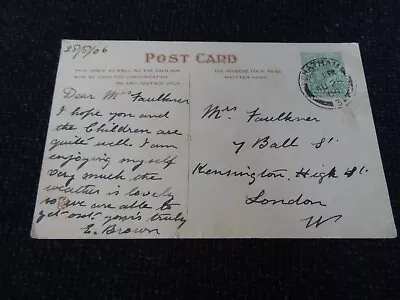 28/5/06
POST CARD
THIS SPACE AS WELL AS THE BACK MAY
NOW BE USED FOR COMMUNICATION
INLAND POSTAGE ONLY
THE ADDRESS ONLY TO BE
WRITTEN HERE
Dear Mrs Faulkner
I hope you and
the Children are
quite well. I am
enjoying my self
very much the
weather is lovely
so we are able to
get out. yours truly
E. Brown
Mrs Faulkner
7 Ball St.
Kensington. High St.
London
W